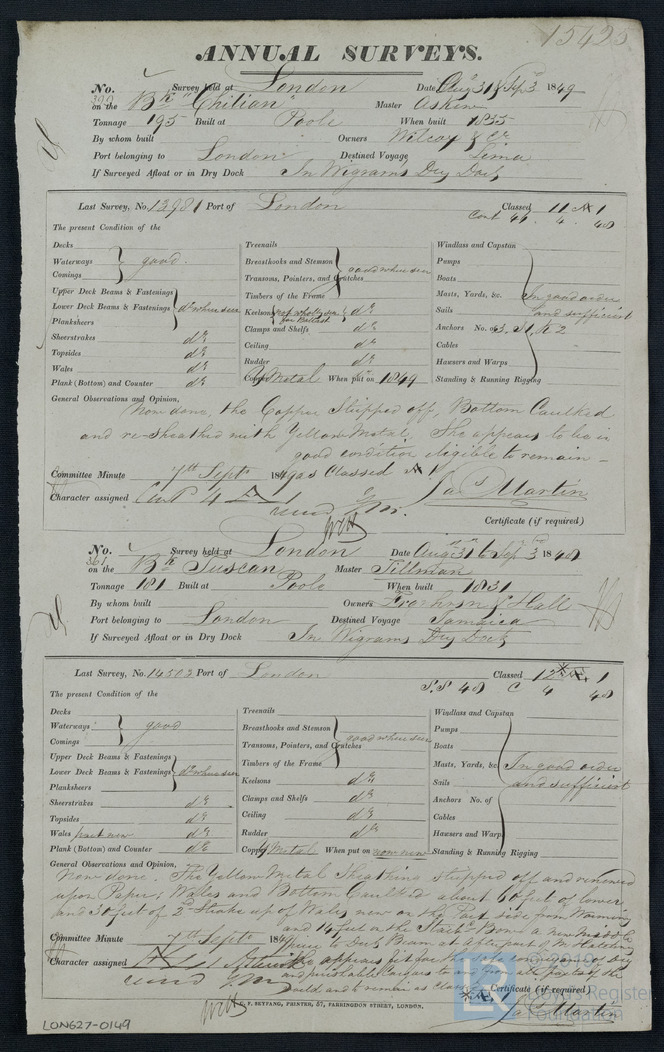 15425
ANNUAL SURVEYS.
No. 390 Survey held at London Date Aug 31 & Sep 3 1849
on the Bk "Chilian" Master Askew
Tonnage 195 Built at Poole When built 1835
By whom built Owners Wilcox & Co
Port belonging to London Destined Voyage Lima
If Surveyed Afloat or in Dry Dock In Wigrams Dry Dock
Last Survey, No. 13981 Port of London Classed 11 A 1
Cont 4 48
The present Condition of the
Decks
Waterways good.
Comings
Upper Deck Beams & Fastenings
Lower Deck Beams & Fastenings do where seen
Planksheers
Sheerstrakes do
Topsides do
Wales do
Plank (Bottom) and Counter do
Treenails
Breasthooks and Stemson good where seen
Transoms, Pointers, and Crutches
Timbers of the Frame
Keelsons for Ballast do
Clamps and Shelfs do
Ceiling do
Rudder do
Copper Y Metal When put on 1849
Windlass and Capstan
Pumps
Boats
Masts, Yards, &c. In good order
Sails and sufficient
Anchors No. of 3, S1, K2
Cables
Hawsers and Warps
Standing & Running Rigging
General Observations and Opinion,
Now done, the Copper Stripped off, Bottom Caulked
and re-sheathed with Yellow Metal. She appears to be in
good condition eligible to remain
Committee Minute 7th Sept 1849 as Classed A 1
Character assigned Cont 4 A 1
Jas Martin
Certificate (if required)
No. 361 Survey held at London Date Aug 31 & Sep 3 1849
on the Bk Tuscan Master Tillman
Tonnage 181 Built at Poole When built 1831
By whom built Owners & Hall
Port belonging to London Destined Voyage Jamaica
If Surveyed Afloat or in Dry Dock In Wigrams Dry Dock
Last Survey, No. 14502 Port of London Classed 12 A 1
S.S 48 C 4 48
The present Condition of the
Decks
Waterways good
Comings
Upper Deck Beams & Fastenings
Lower Deck Beams & Fastenings do where seen
Planksheers
Sheerstrakes do
Topsides do
Wales part new do
Plank (Bottom) and Counter do
Treenails
Breasthooks and Stemson good where seen
Transoms, Pointers, and Crutches
Timbers of the Frame
Keelsons do
Clamps and Shelfs do
Ceiling do
Rudder do
Copper Y Metal When put on now new
Windlass and Capstan
Pumps
Boats
Masts, Yards, &c. In good order
Sails and sufficient
Anchors No. of
Cables
Hawsers and Warps
Standing & Running Rigging
General Observations and Opinion,
Now done. The Yellow Metal Sheathing stripped off and renewed
upon Paper; Wales and Bottom Caulked about 60 feet of lower
and 30 feet of 2d Strake up of Wales new on the Port side from
and 14 feet on the Starbd Bow a new
Deck Beam at after part of M Hatchway
Committee Minute 7th Sept 1849
Character assigned A 1
she appears fit for the safe conveyance of dry
and perishable Cargoes to and from all parts of the
world and to remain as classed A 1
Certificate (if required)
Jas Martin
SEYFANG, PRINTER, 57, FARRINGDON STREET, LONDON.
LON627-0149
© 2019
Lloyd's Register
Foundation